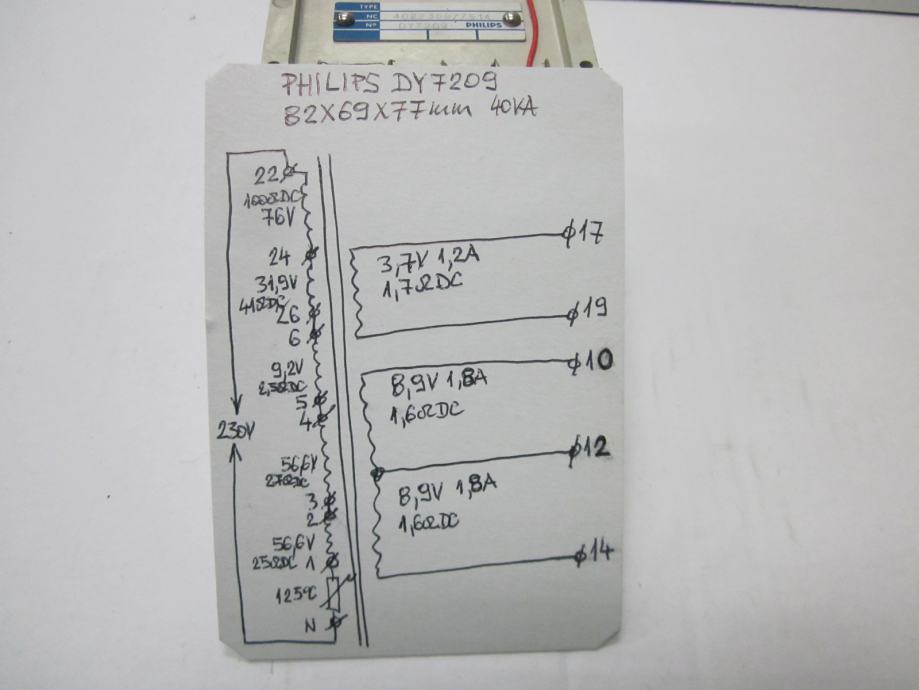 TYPE
NC
Nº DY7209 PHILIPS
PHILIPS DY7209
82X69X77mm 40VA
22
100ΩDC
76V
24
31,9V
41ΩDC
26
6
9,2V
2,5ΩDC
5
4
230V
56,6V
27ΩDC
3
2
56,6V
25ΩDC 1
125°C
N
17
3,7V 1,2A
1,7ΩDC
19
10
8,9V 1,8A
1,6ΩDC
12
8,9V 1,8A
1,6ΩDC
14